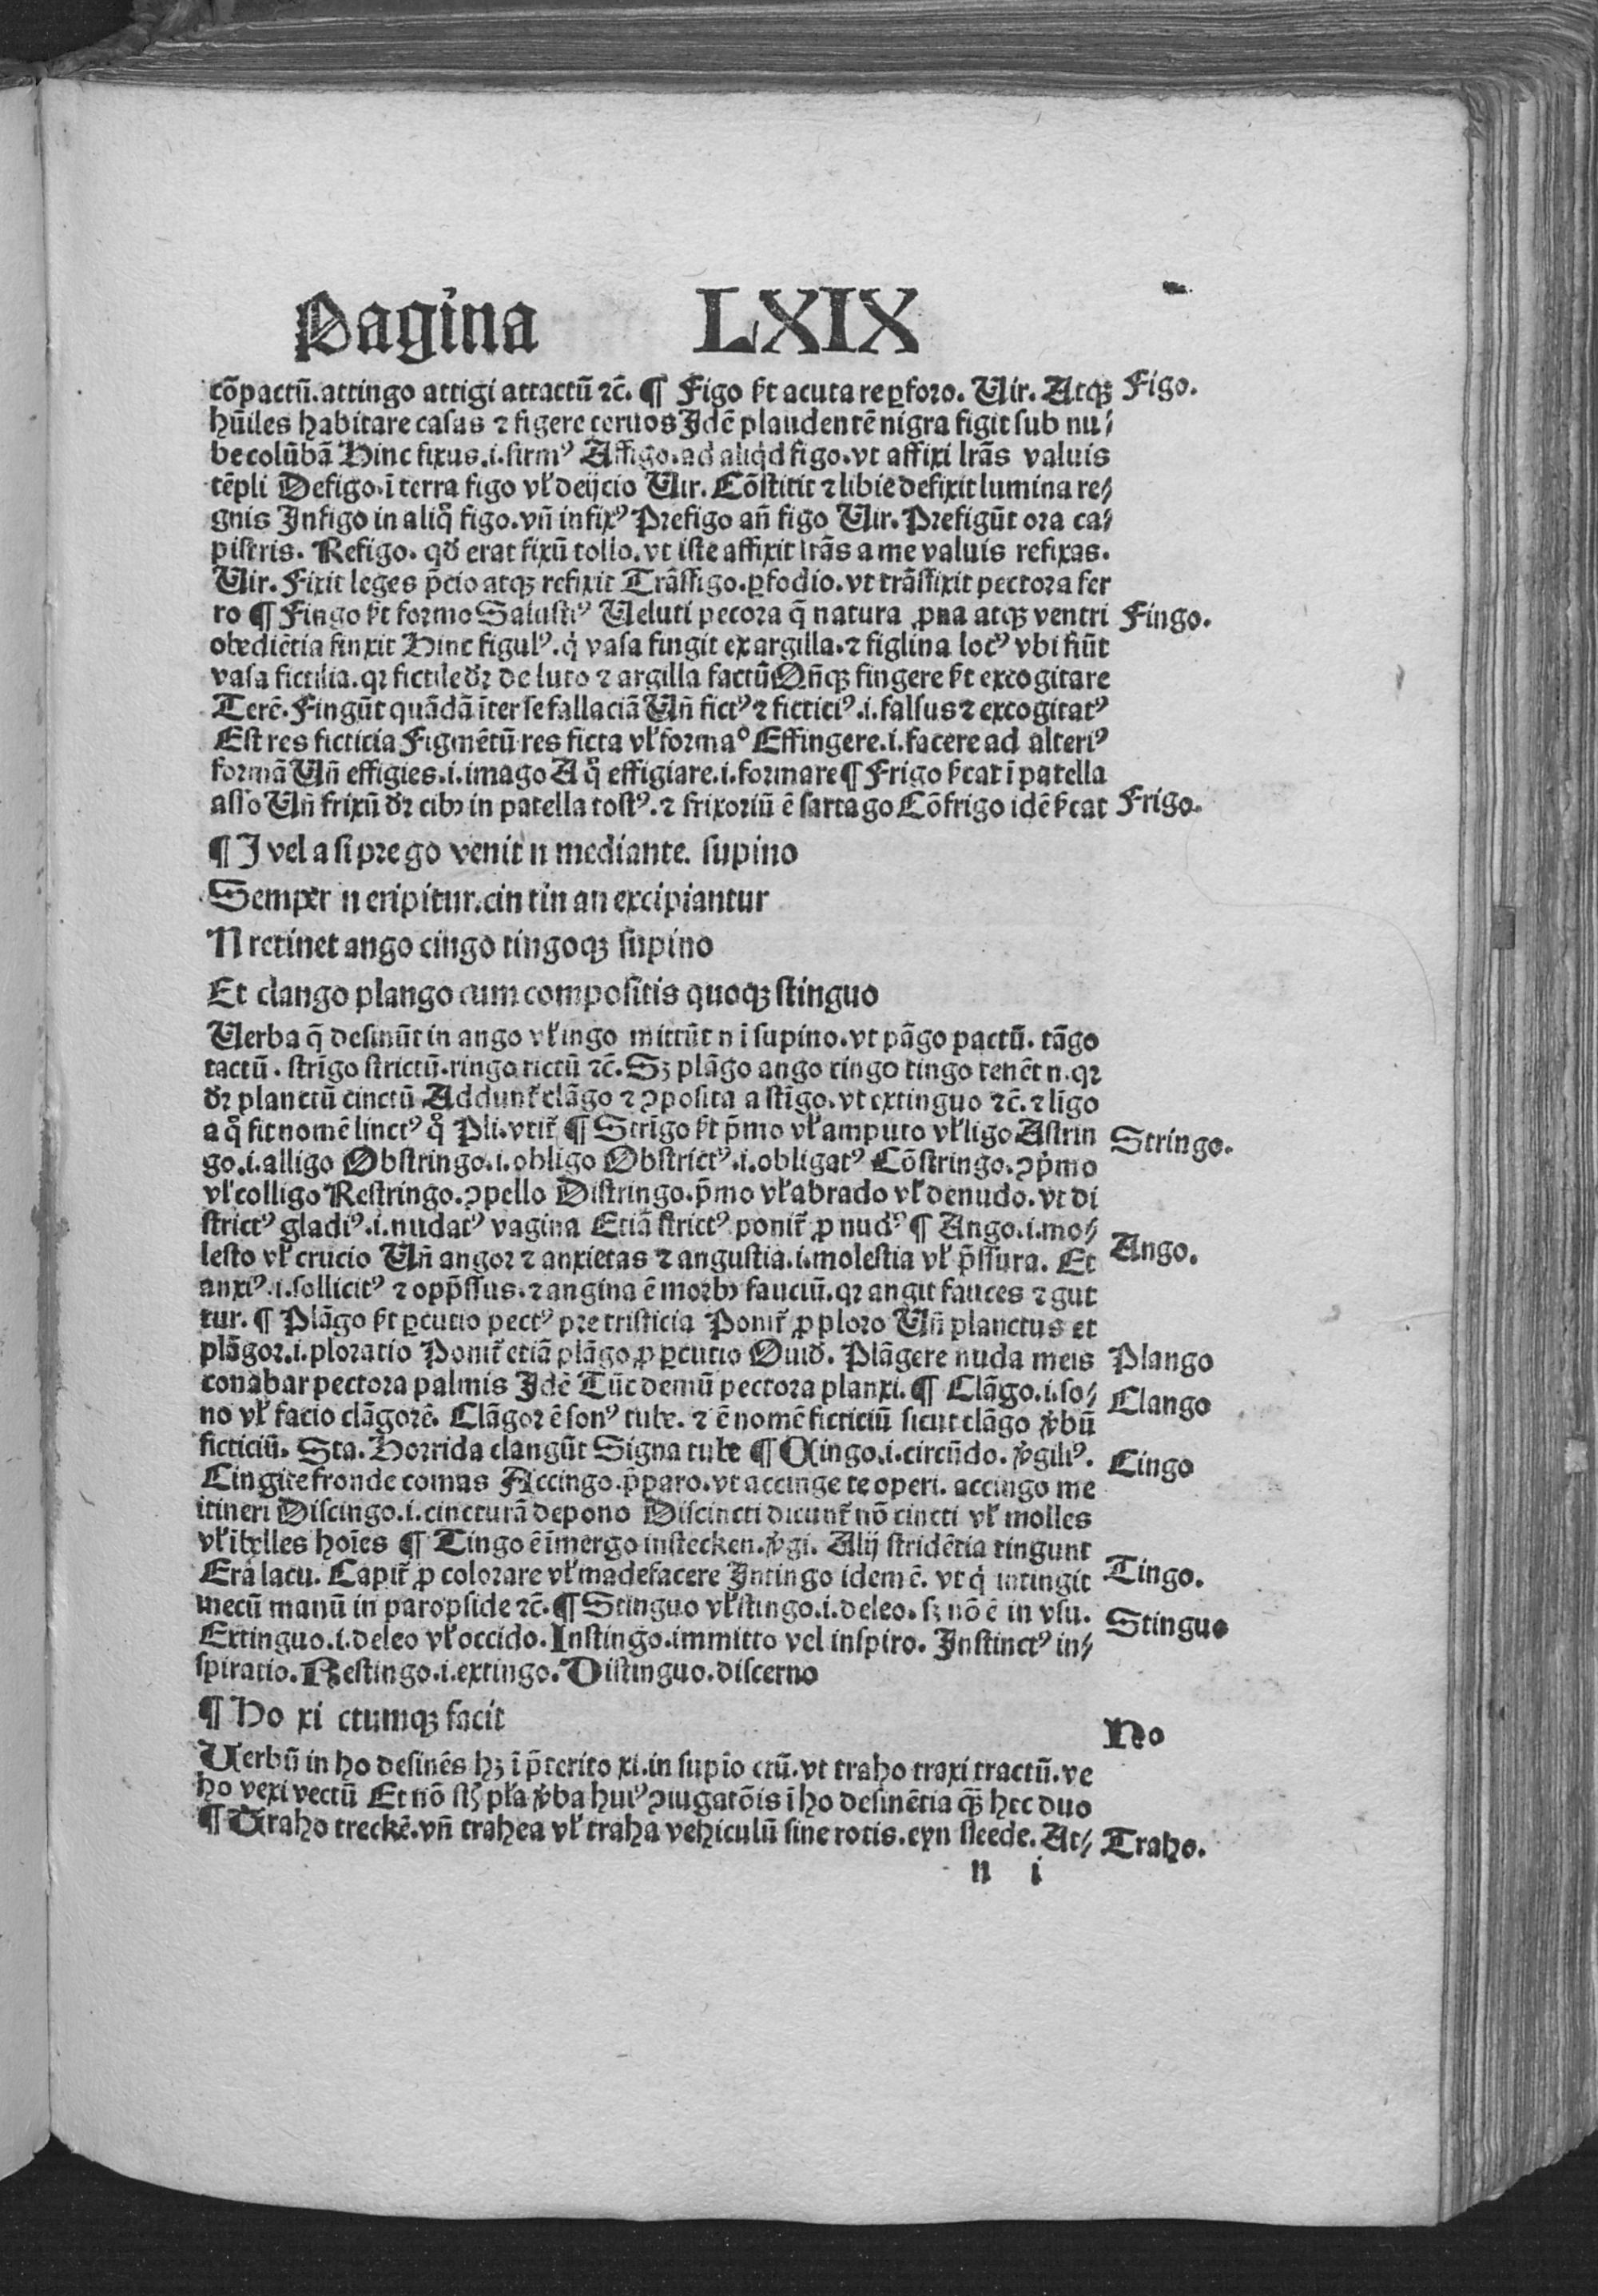 Pagina LXIX
cõpactũ.attingo attigi attactũ ⁊c̃. ¶ Figo ẜt acuta re ꝑforo. Uir. Atqꝫ
Figo.
hũiles habitare casas ⁊ figere ceruos Jdẽ plaudentẽ nigra figit sub nu⸗
be colũbã Hinc fixus.i.firmꝰ Affigo.ad aliqͥd figo.vt affixi lr̃as valuis
tẽpli Defigo.ĩ terra figo vl̓ deijcio Uir. Cõstitit ⁊ libie defixit lumina re⸗
gnis Jnfigo in aliqͦ figo.vñ infixꝰ Prefigo añ figo Uir. Prefigũt ora ca⸗
pistris. Refigo. qď erat fixũ tollo. vt iste affixit lr̃as a me valuis refixas.
Uir. Fixit leges p̃cio atqꝫ refixit Trãsfigo.ꝑfodio.vt trãsfixit pectora fer
ro ¶ Fingo ẜt formo Salustiꝰ Ueluti pecora q̃ natura ꝓna atqꝫ ventri
Fingo.
obediẽtia finxit Hinc figulꝰ.qͥ vasa fingit ex argilla.⁊ figlina locꝰ vbi fiũt
vasa fictilia.qꝛ fictile dꝛ̃ de luto ⁊ argilla factũ Qñqꝫ fingere ẜt excogitare
Terẽ. Fingũt quãdã ĩter se fallaciã Uñ fictꝰ ⁊ ficticiꝰ.i.falsus ⁊ excogitatꝰ
Est res ficticia Figmẽtũ res ficta vl̓ formaͦ Effingere.i.facere ad alteriꝰ
formã Uñ effigies.i.imago A qͦ effigiare.i.formare ¶ Frigo ẜcat ĩ patella
asso Uñ frixũ dꝛ̃ cibꝰ in patella tostꝰ. ⁊ frixoriũ ẽ sartago Cõfrigo idẽ ẜcat
Frigo.
¶ J vel a si pre go venit n mediante. supino
Semper n eripitur.cin tin an excipiantur
N retinet ango cingo tingoqꝫ supino
Et clango plango cum compositis quoqꝫ stinguo
Uerba q̃ desinũt in ango vl̓ ingo mittũt n ĩ supino.vt pãgo pactũ. tãgo
tactũ. strĩgo strictũ.ringo rictũ ⁊c̃. Sꝫ plãgo ango cingo tingo tenẽt n.qꝛ
dꝛ̃ planctũ cinctũ Addunt̃ clãgo ⁊ ꝯposita a stĩgo.vt extinguo ⁊c̃. ⁊ lĩgo
a qͦ fit nomẽ linctꝰ qͦ Pli.vtit̃ ¶ Strĩgo ẜt p̃mo vl̓ amputo vl̓ ligo Astrin
Stringo.
go.i.alligo Obstringo.i.obligo Obstrictꝰ.i.obligatꝰ Cõstringo.ꝯp̃mo
vl̓ colligo Restringo.ꝯpello Distringo.p̃mo vl̓ abrado vl̓ denudo.vt di
strictꝰ gladiꝰ.i.nudatꝰ vagina Etiã strictꝰ ponit̃ ꝓ nudꝰ ¶ Ango.i.mo⸗
Ango.
lesto vl̓ crucio Uñ angor ⁊ anxietas ⁊ angustia.i.molestia vl̓ p̃ssura. Et
anxiꝰ.i.sollicitꝰ ⁊ opp̃ssus.⁊ angina ẽ morbꝰ fauciũ.qꝛ angit fauces ⁊ gut
tur. ¶ Plãgo ẜt ꝑcutio pectꝰ pre tristicia Ponit̃ ꝓ ploro Uñ planctus et
plãgor.i.ploratio Ponit̃ etiã plãgo ꝓ ꝑcutio Ouid. Plãgere nuda meis
Plango
conabar pectora palmis Jdẽ Tũc demũ pectora planxi. ¶ Clãgo.i.so⸗
Clango
no vl̓ facio clãgorẽ. Clãgor ẽ sonꝰ tube. ⁊ ẽ nomẽ ficticiũ sicut clãgo v̓bũ
ficticiũ. Sta. Horrida clangũt Signa tube ¶ Cingo.i.circũdo. v̓giliꝰ.
Cingo
Cingite fronde comas Accingo.p̃paro.vt accinge te operi. accingo me
itineri Discingo.i.cincturã depono Discincti dicunt̃ nõ cincti vl̓ molles
vl̓ ĩbelles hoĩes ¶ Tingo ẽ ĩmergo instecken.v̓gi. Alij stridẽtia tingunt
Tingo.
Era lacu. Capit̃ ꝓ colorare vl̓ madefacere Jntingo idem ẽ. vt qͥ intingit
mecũ manũ in paropside ⁊c̃. ¶ Stinguo vl̓ stingo.i.deleo. sꝫ nõ ẽ in vsu.
Stinguo
Extinguo.i.deleo vl̓ occido. Instingo.immitto vel inspiro. Jnstinctꝰ in⸗
spiratio. Restingo.i.extingo. Distinguo.discerno
¶ Ho xi ctumqꝫ facit
Ho
Uerbũ in ho desinẽs hꝫ ĩ p̃terito xi.in supĩo ctũ.vt traho traxi tractũ.ve
ho vexi vectũ Et nõ sũt pl̓a v̓ba huiꝰ ꝯiugatõis ĩ ho desinẽtia qꝫ̃ hec duo
¶ Traho treckẽ.vñ trahea vl̓ traha vehiculũ sine rotis.eyn sleede. At⸗
Traho.
n i